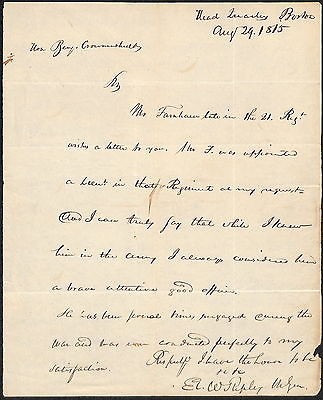 Head Quarters Boston
Aug 29. 1815
Hon Benj. Crowninshield
Sir
Mr Farnham late in the 21. Regt
wishes a letter to you. Mr F. was appointed
a Lieut in that Regiment at my request
And I can truly say that while I knew
him in the army I always considered him
a brave attentive good officer.
He has been several times engaged during the
war and has ever conducted perfectly to my
satisfaction.
Respectf I have the honor to be
E. W. Ripley M. Gen.